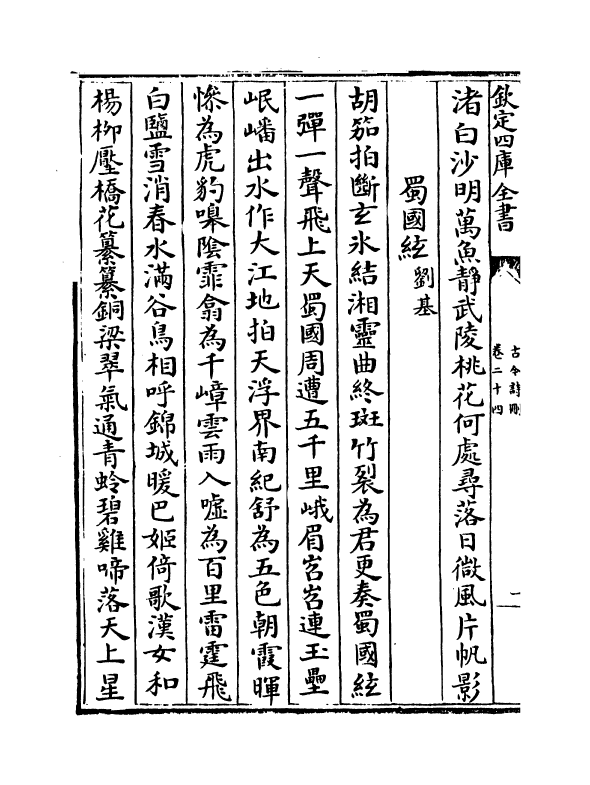 欽定四庫全書
古今詩刪
卷二十四
二
渚白沙明萬魚靜武陵桃花何處尋落日微風片帆影
蜀國絃劉基
胡笳拍斷玄氷結湘靈曲終斑竹裂為君更奏蜀國絃
一彈一聲飛上天蜀國周遭五千里峨眉岧岧連玉壘
岷嶓出水作大江地拍天浮界南紀舒為五色朝霞暉
慘為虎豹嘷陰霏翕為千嶂雲雨入噓為百里雷霆飛
白鹽雪消春水滿谷鳥相呼錦城暖巴姬倚歌漢女和
楊柳壓橋花纂纂銅梁翠氣通青蛉碧雞啼落天上星